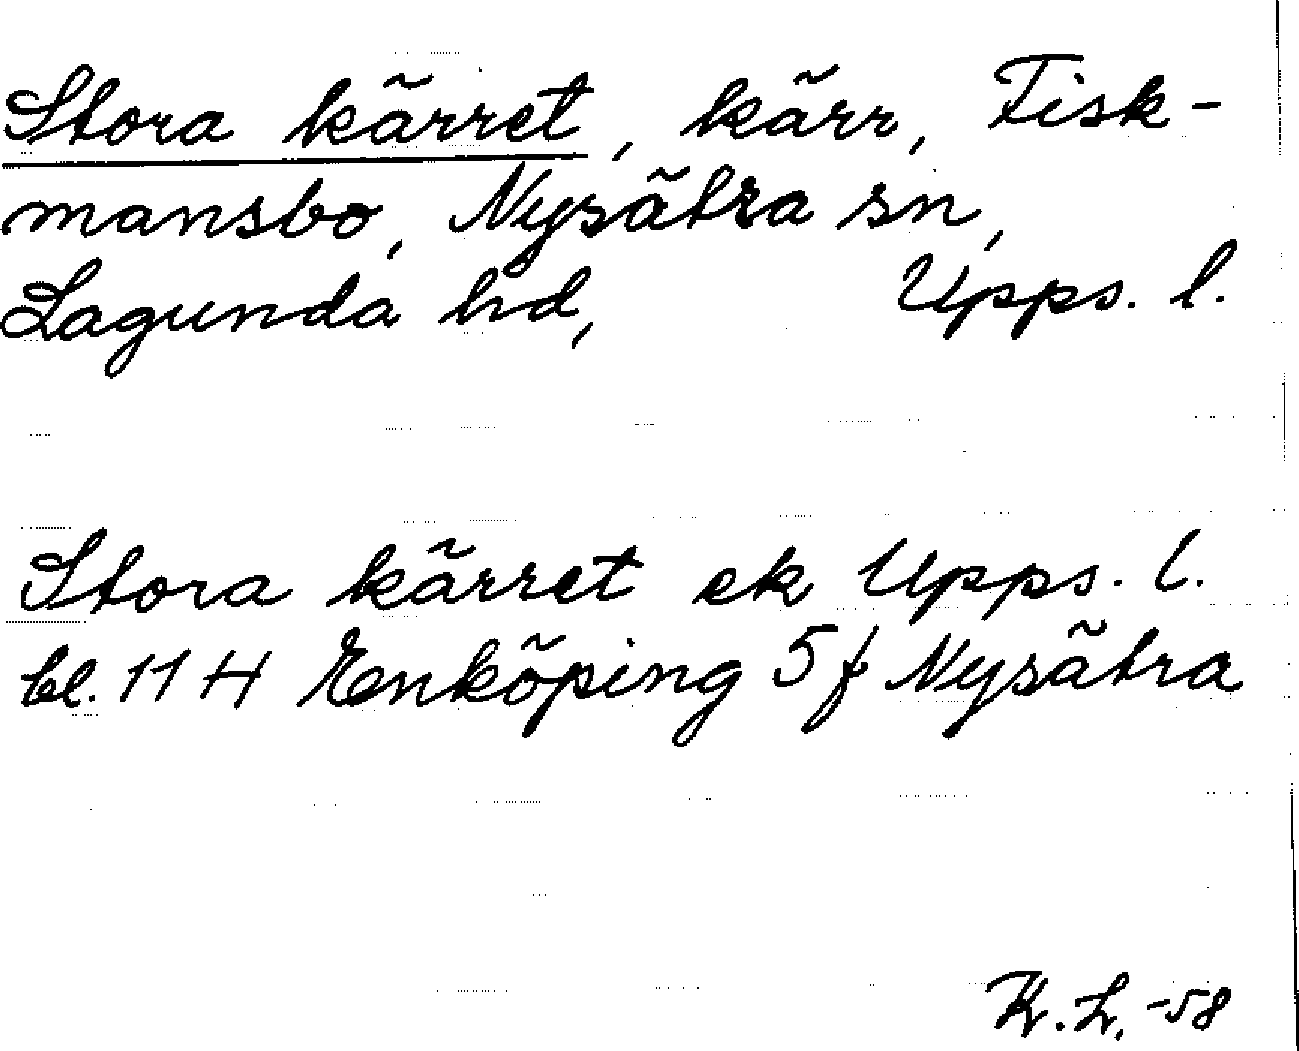 Stora kärret, kärr, Fisk-
mansbo, Nysätra sn,
Lagunda hd, Upps. l.
Stora kärret ek Upps. l.
bl. 11 H Enköping 5 f Nysätra
K. L. -58